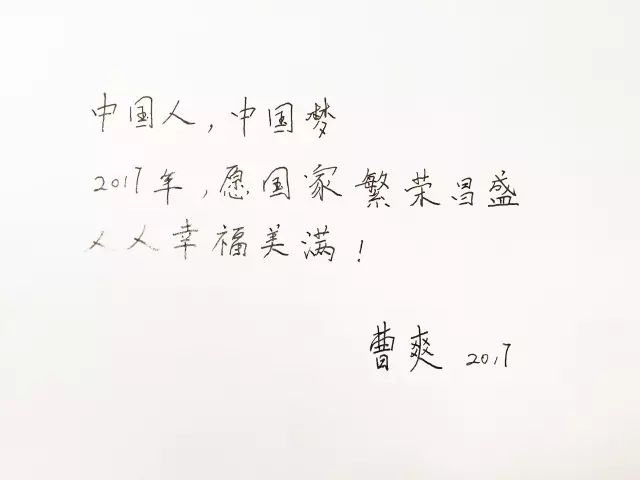 中国人，中国梦
2017年，愿国家繁荣昌盛
人人幸福美满！
曹爽 2017